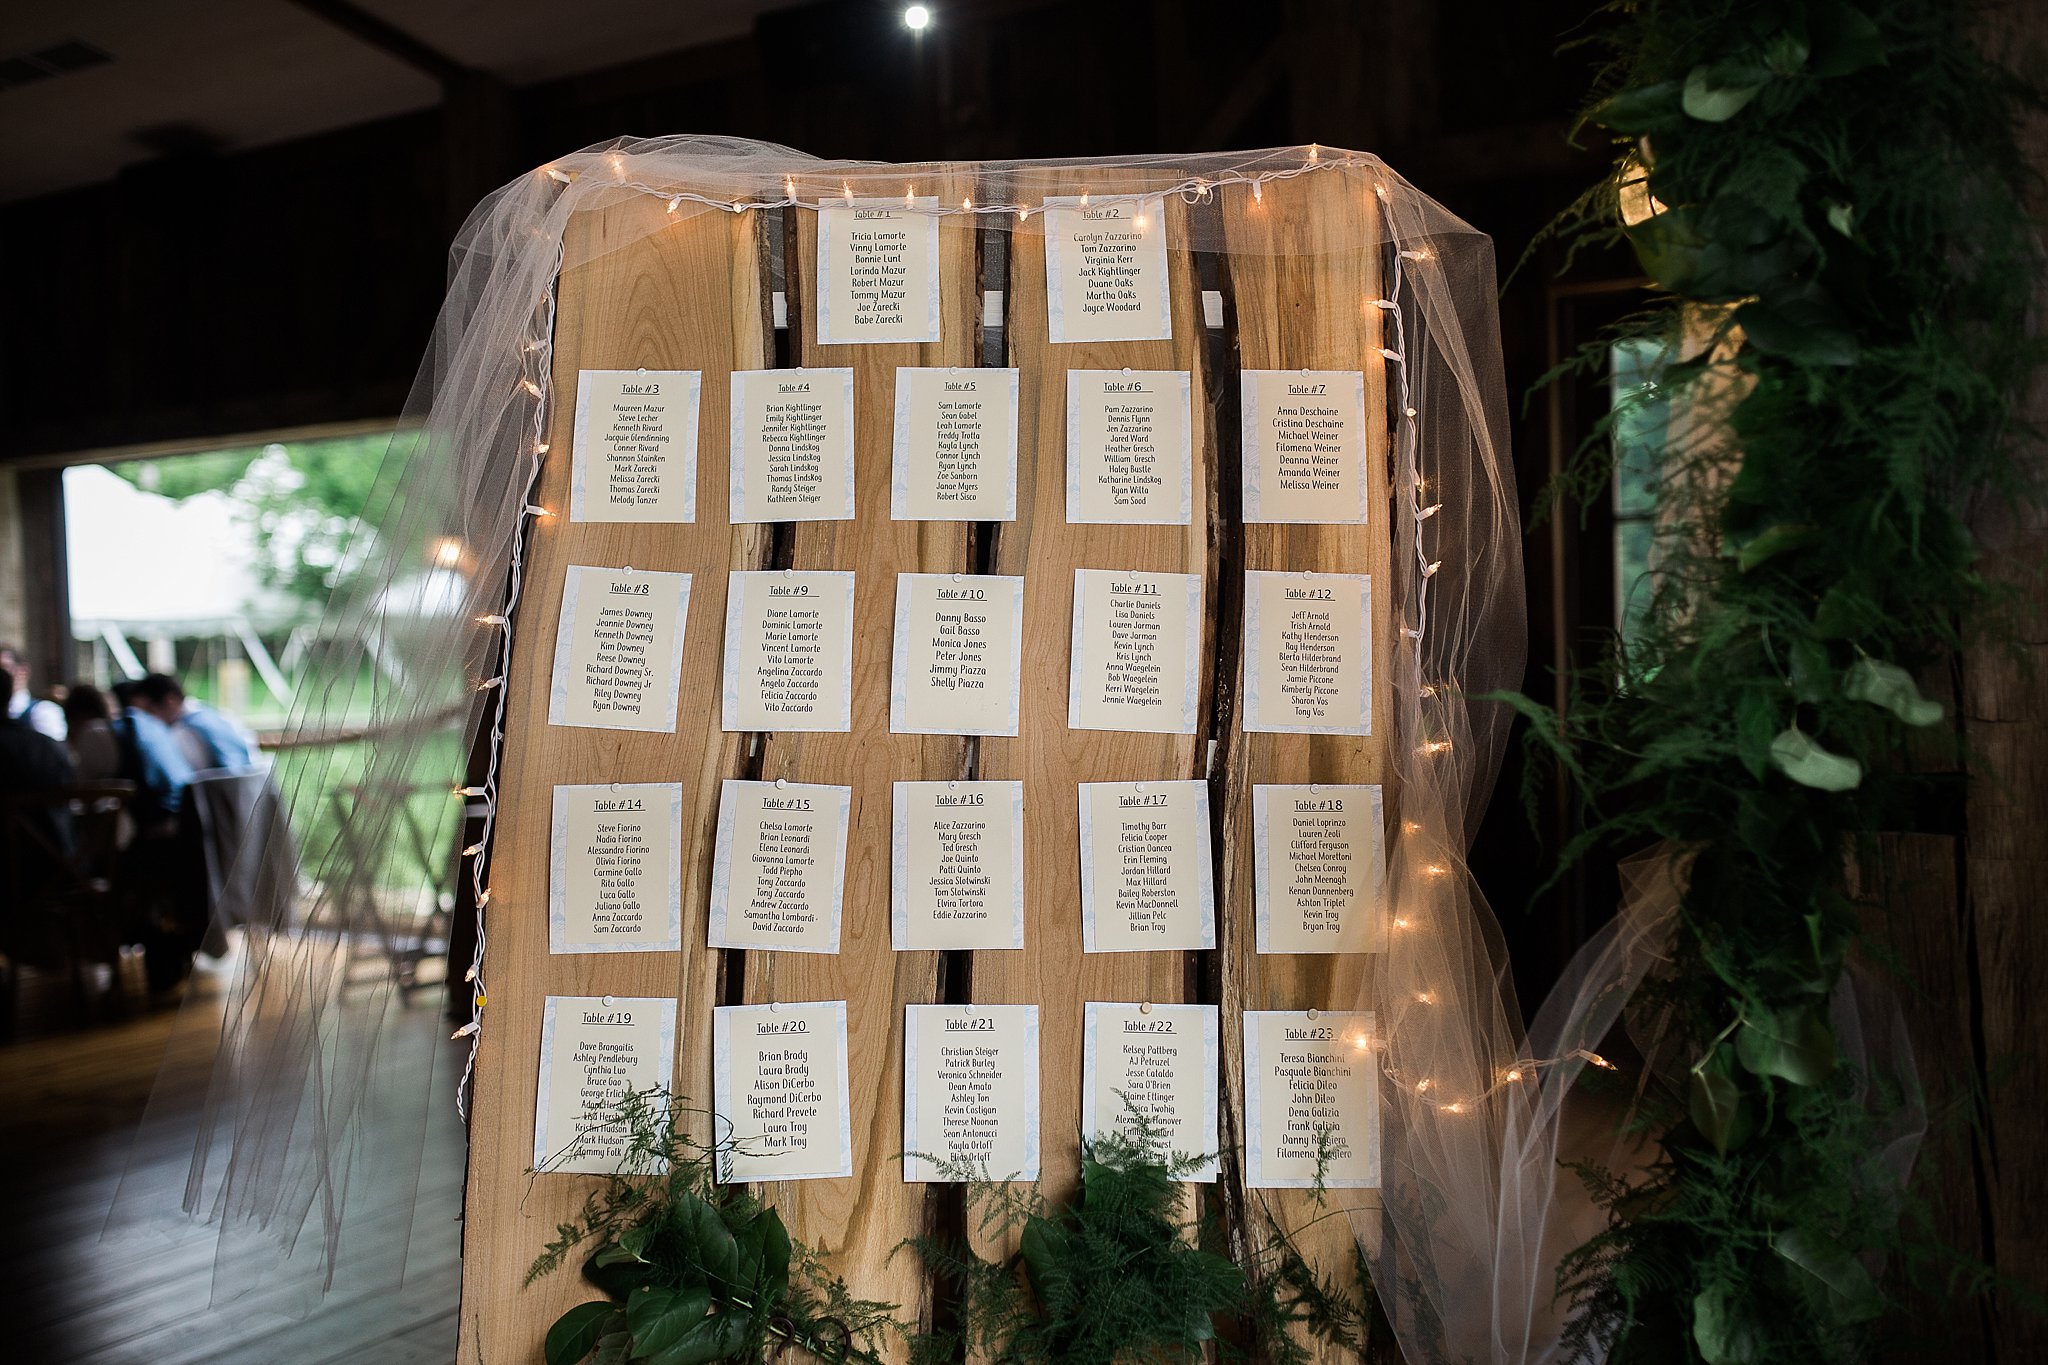 Table #1
Tricia Lamorte
Vinny Lamorte
Bonnie Lunt
Lorinda Mazur
Robert Mazur
Tommy Mazur
Joe Zarecki
Babe Zarecki
Table #2
Carolyn Zazzarino
Tom Zazzarino
Virginia Kerr
Jack Kightlinger
Duane Oaks
Martha Oaks
Joyce Woodard
Table #3
Maureen Mazur
Steve Lecher
Kenneth Rivard
Jacquie Glendinning
Conner Rivard
Shannon Stainken
Mark Zarecki
Melissa Zarecki
Thomas Zarecki
Melody Tanzer
Table #4
Brian Kightlinger
Emily Kightlinger
Jennifer Kightlinger
Rebecca Kightlinger
Donna Lindskog
Jessica Lindskog
Sarah Lindskog
Thomas Lindskog
Randy Steiger
Kathleen Steiger
Table #5
Sam Lamorte
Sean Gabel
Leah Lamorte
Freddy Trotta
Kayla Lynch
Connor Lynch
Ryan Lynch
Zoe Sanborn
Janae Myers
Robert Sisco
Table #6
Pam Zazzarino
Dennis Flynn
Jen Zazzarino
Jared Ward
Heather Gresch
William Gresch
Haley Bustle
Katharine Lindskog
Ryan Wilta
Sam Sood
Table #7
Anna Deschaine
Cristina Deschaine
Michael Weiner
Filomena Weiner
Deanna Weiner
Amanda Weiner
Melissa Weiner
Table #8
James Downey
Jeannie Downey
Kenneth Downey
Kim Downey
Reese Downey
Richard Downey Sr.
Richard Downey Jr
Riley Downey
Ryan Downey
Table #9
Diane Lamorte
Dominic Lamorte
Marie Lamorte
Vincent Lamorte
Vito Lamorte
Angelina Zaccardo
Angelo Zaccardo
Felicia Zaccardo
Vito Zaccardo
Table #10
Danny Basso
Gail Basso
Monica Jones
Peter Jones
Jimmy Piazza
Shelly Piazza
Table #11
Charlie Daniels
Lisa Daniels
Lauren Jarman
Dave Jarman
Kevin Lynch
Kris Lynch
Anna Waegelein
Bob Waegelein
Kerri Waegelein
Jennie Waegelein
Table #12
Jeff Arnold
Trish Arnold
Kathy Henderson
Ray Henderson
Blerta Hilderbrand
Sean Hilderbrand
Jamie Piccone
Kimberly Piccone
Sharon Vos
Tony Vos
Table #14
Steve Fiorino
Nadia Fiorino
Alessandro Fiorino
Olivia Fiorino
Carmine Gallo
Rita Gallo
Luca Gallo
Juliano Gallo
Anna Zaccardo
Sam Zaccardo
Table #15
Chelsa Lamorte
Brian Leonardi
Elena Leonardi
Giovanna Lamorte
Todd Piepho
Tony Zaccardo
Tony Zaccardo
Andrew Zaccardo
Samantha Lombardi
David Zaccardo
Table #16
Alice Zazzarino
Mary Gresch
Ted Gresch
Joe Quinto
Patti Quinto
Jessica Slotwinski
Tom Slotwinski
Elvira Tortora
Eddie Zazzarino
Table #17
Timothy Barr
Felicia Cooper
Cristian Oancea
Erin Fleming
Jordan Hillard
Max Hillard
Bailey Roberston
Kevin MacDonnell
Jillian Pelc
Brian Troy
Table #18
Daniel Loprinzo
Lauren Zeoli
Clifford Ferguson
Michael Morettoni
Chelsea Conroy
John Meenagh
Kenan Dannenberg
Ashton Triplet
Kevin Troy
Bryan Troy
Table #19
Dave Brangaitis
Ashley Pendlebury
Cynthia Luo
Bruce Gao
George Erlich
Adam Hersh
Lisa Hersh
Kristin Hudson
Mark Hudson
Tammy Folk
Table #20
Brian Brady
Laura Brady
Alison DiCerbo
Raymond DiCerbo
Richard Prevete
Laura Troy
Mark Troy
Table #21
Christian Steiger
Patrick Burley
Veronica Schneider
Dean Amato
Ashley Ton
Kevin Costigan
Therese Noonan
Sean Antonucci
Kayla Orloff
Elias Orloff
Table #22
Kelsey Pattberg
AJ Petruzel
Jesse Cataldo
Sara O'Brien
Elaine Ettinger
Jessica Twohig
Alexandra Hanover
Emily
Emily's Guest
Conti
Table #23
Teresa Bianchini
Pasquale Bianchini
Felicia Dileo
John Dileo
Dena Galizia
Frank Galizia
Danny Ruggiero
Filomena Ruggiero